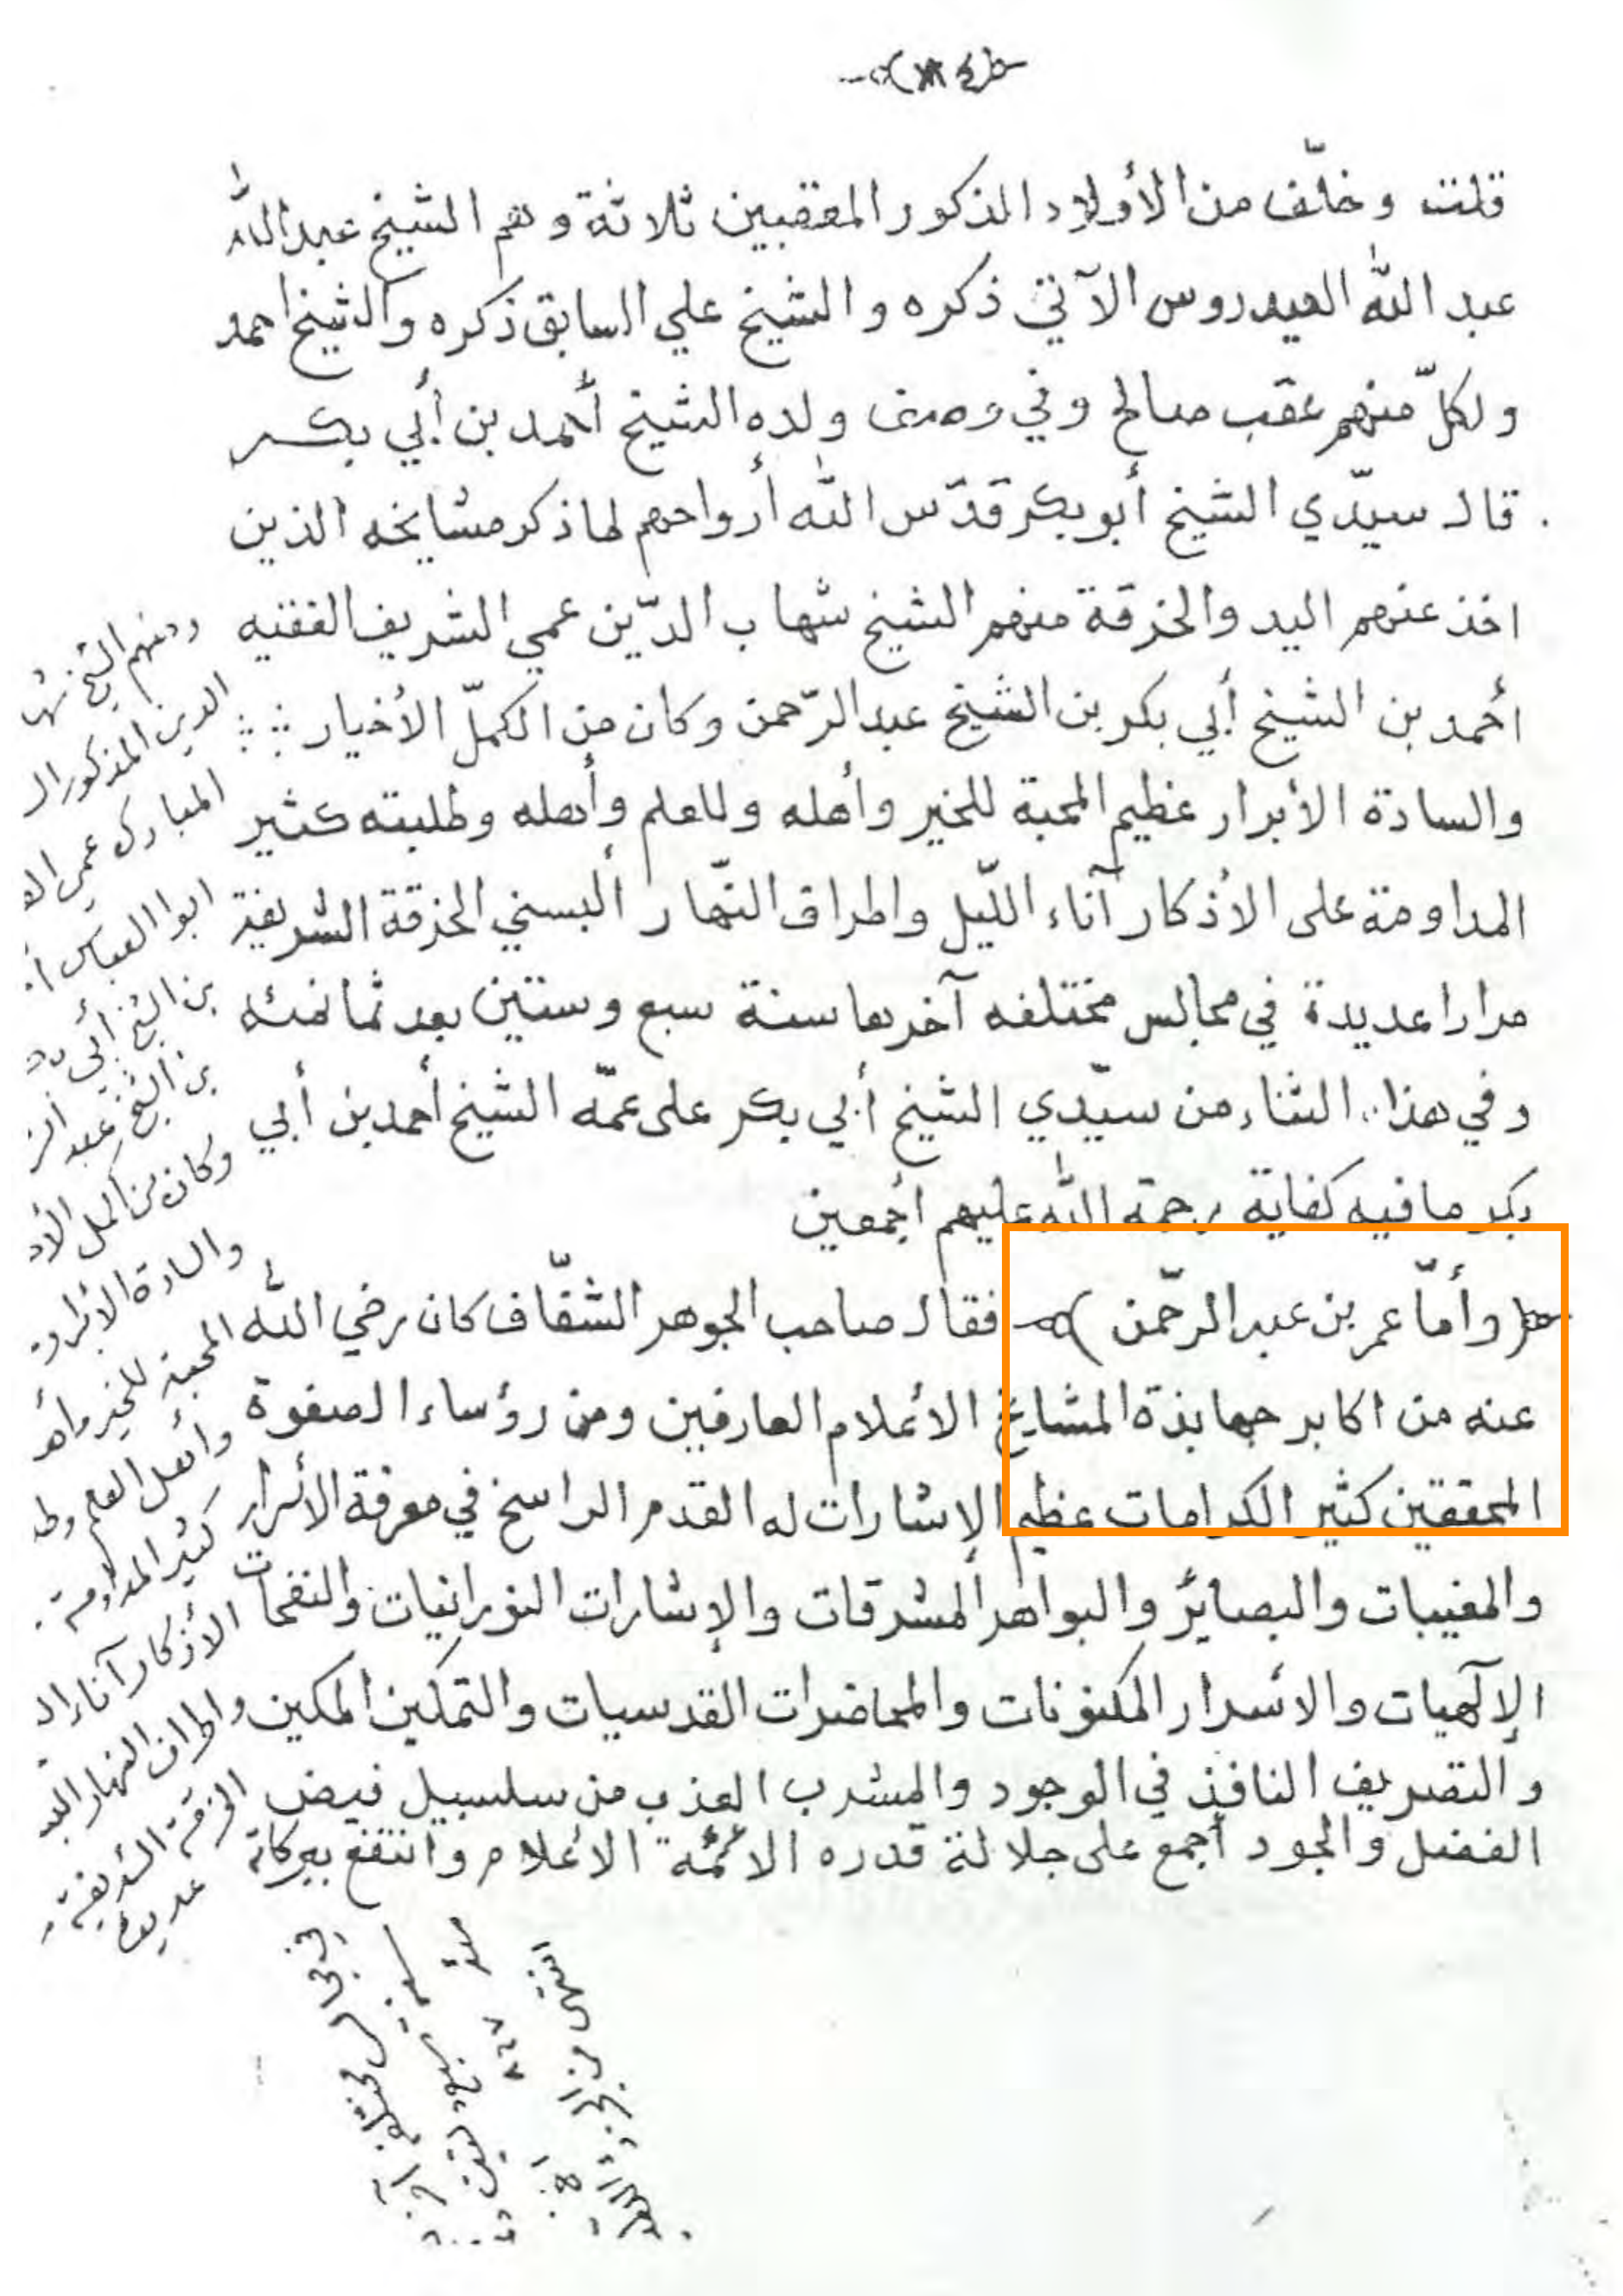 قلت وخلّف من الأولاد المذكور المعقبين ثلاثة وهم الشيخ عبدالله
عبد الله العيدروس الآتي ذكره والشيخ علي السابق ذكره والشيخ احمد
ولكلّ منهم عقب صالح وفي وصف ولده الشيخ أحمد بن أبي بكر
قال سيّدي الشيخ أبو بكر قدّس الله أرواحهم لما ذكر مشايخه الذين
اخذ عنهم اليد والخرقة منهم الشيخ شهاب الدّين عمي الشريف الفقيه
أحمد بن الشيخ أبي بكر بن الشيخ عبد الرّحمن وكان من الكمّل الأخيار
والسادة الأبرار عظيم المحبة للخير وأهله وللعلم وأهله وطلبته كثير
المداومة على الأذكار آناء اللّيل واطراف النّهار ألبسني الخرقة الشريفة
مرارا عديدة في مجالس مختلفه آخرها سنة سبع وستين بعد ثمانمئه
وفي هذا الثناء من سيّدي الشيخ أبي بكر على عمّه الشيخ أحمد بن أبي
بكر ما فيه كفاية رحمة الله عليهم أجمعين
(وأمّا عمر بن عبد الرّحمن) فقال صاحب الجوهر الشفّاف كان رضي الله
عنه من اكابر جهابذة المشايخ الأعلام العارفين ومن رؤساء الصفوة
المحققين كثير الكرامات عظيم الإشارات له القدم الراسخ في معرفة الأسرار
والمغيبات والبصائر والبواهر المشرقات والإشارات النورانيات والنفحات
الإلهيات والاسرار المكنونات والمحاضرات القدسيات والتمكين المكين
والتصريف النافذ في الوجود والمشرب العذب من سلسبيل فيض
الفضل والجود أجمع على جلالة قدره الائمّة الاعلام وانتفع ببركاته
ومنهم الشيخ شها
الدين المذكور ال
المبارك عمي
ابوا العباس
بن الشيخ أبي
بن الشيخ عبد
وكان من الكمل
والسادة الأبرار
المحبة للخير وأهـ
وأهل العلم وطـ
كثير المداومة
الأذكار آناء الـ
واطراف النهار
الخرقة الشريفة
عديدة
في مجالس مختلفة
سنة
٨٦٧
انتهى من الجزء